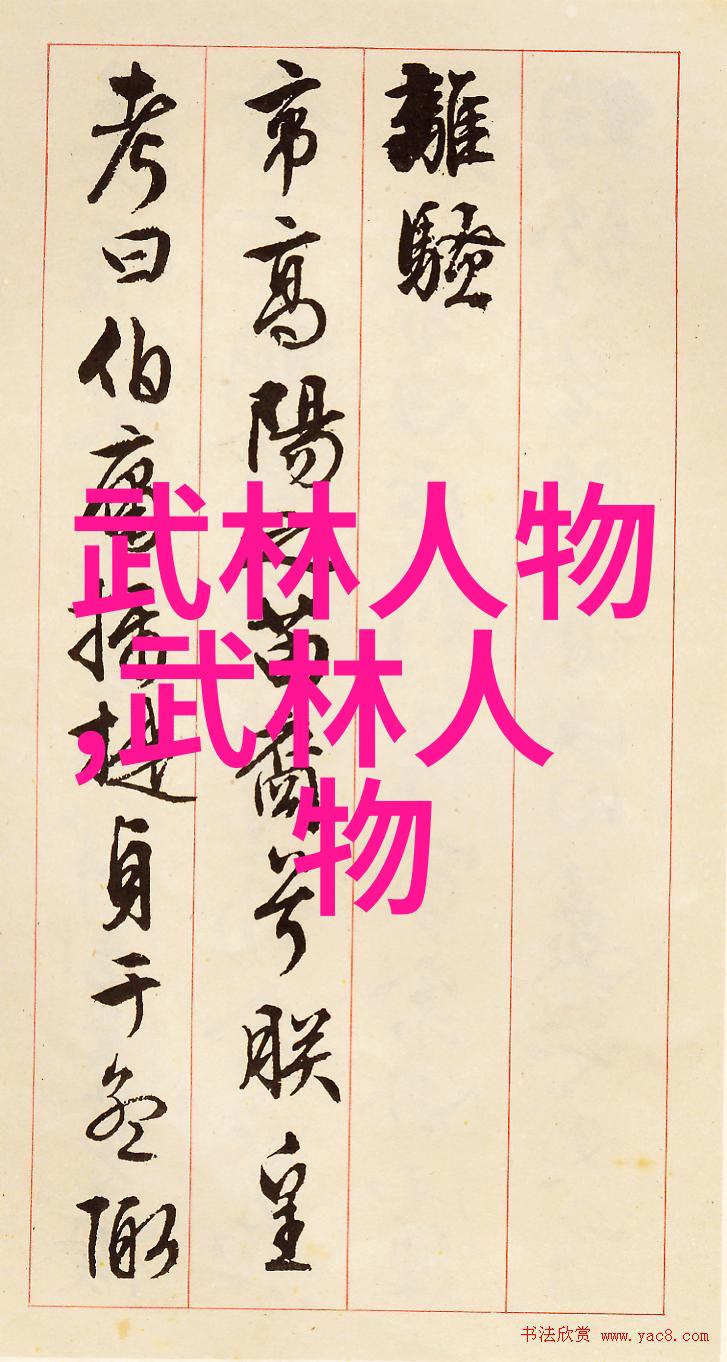 離騷
帝高陽之苗裔兮朕皇
考曰伯庸攝提貞于孟陬
武林人物
,武林人
物
书法欣赏 www.yac8.com